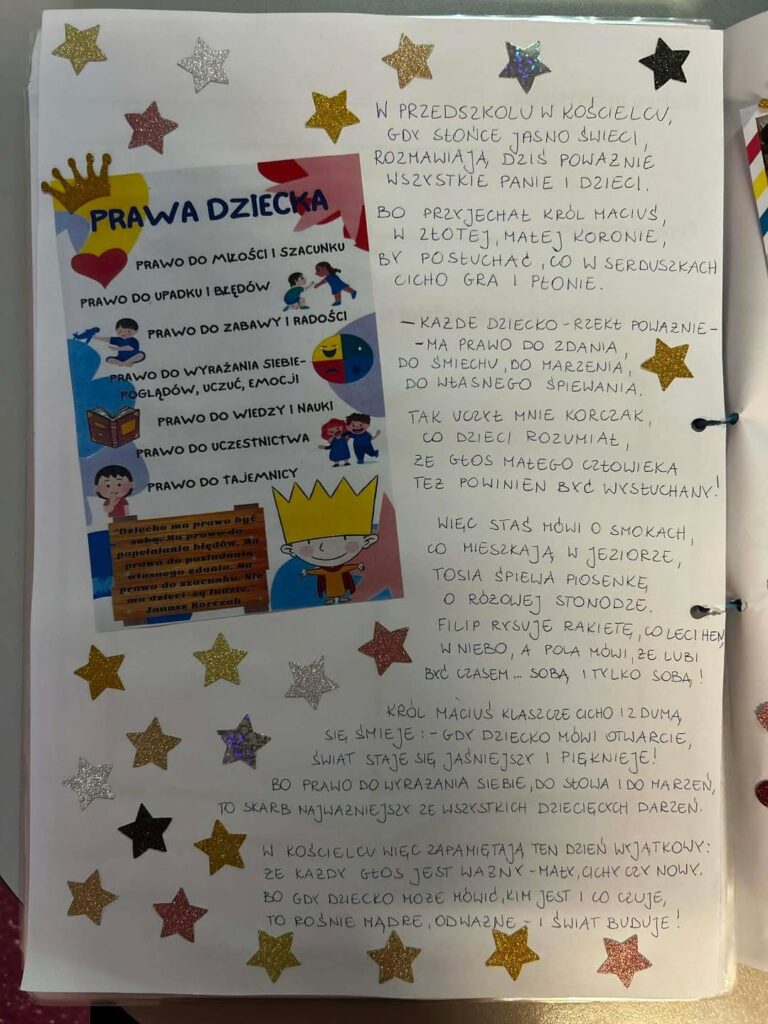 PRAWA DZIECKA
PRAWO DO MIŁOŚCI I SZACUNKU
PRAWO DO UPADKU I BŁĘDÓW
PRAWO DO ZABAWY I RADOŚCI
PRAWO DO WYRAŻANIA SIEBIE-
POGLĄDÓW, UCZUĆ, EMOCJI
PRAWO DO WIEDZY I NAUKI
PRAWO DO UCZESTNICTWA
PRAWO DO TAJEMNICY
"Dziecko ma prawo być
sobą. Ma prawo do
popełniania błędów. Ma
prawo do posiadania
własnego zdania. Ma
prawo do szacunku. Nie
ma dzieci- są ludzie."
Janusz Korczak
W PRZEDSZKOLU W KOŚCIELCU,
GDY SŁOŃCE JASNO ŚWIECI,
ROZMAWIAJĄ DZIŚ POWAŻNIE
WSZYSTKIE PANIE I DZIECI.
BO PRZYJECHAŁ KRÓL MACIUŚ,
W ZŁOTEJ, MAŁEJ KORONIE,
BY POSŁUCHAĆ, CO W SERDUSZKACH
CICHO GRA I PŁONIE.
– KAŻDE DZIECKO – RZEKŁ POWAŻNIE –
– MA PRAWO DO ZDANIA,
DO ŚMIECHU, DO MARZENIA,
DO WŁASNEGO ŚPIEWANIA.
TAK UCZYŁ MNIE KORCZAK,
CO DZIECI ROZUMIAŁ,
ŻE GŁOS MAŁEGO CZŁOWIEKA
TEŻ POWINIEN BYĆ WYSŁUCHANY!
WIĘC STAŚ MÓWI O SMOKACH,
CO MIESZKAJĄ W JEZIORZE,
TOSIA ŚPIEWA PIOSENKĘ
O RÓŻOWEJ STONODZE.
FILIP RYSUJE RAKIETĘ, CO LECI HEN,
W NIEBO, A POLA MÓWI, ŻE LUBI
BYĆ CZASEM... SOBĄ I TYLKO SOBĄ!
KRÓL MACIUŚ KLASZCZE CICHO I Z DUMĄ
SIĘ ŚMIEJE: – GDY DZIECKO MÓWI OTWARCIE,
ŚWIAT STAJE SIĘ JAŚNIEJSZY I PIĘKNIEJE!
BO PRAWO DO WYRAŻANIA SIEBIE, DO SŁOWA I DO MARZEŃ,
TO SKARB NAJWAŻNIEJSZY ZE WSZYSTKICH DZIECIĘCYCH DARZEŃ.
W KOŚCIELCU WIĘC ZAPAMIĘTAJĄ TEN DZIEŃ WYJĄTKOWY:
ŻE KAŻDY GŁOS JEST WAŻNY – MAŁY, CICHY CZY NOWY.
BO GDY DZIECKO MOŻE MÓWIĆ, KIM JEST I CO CZUJE,
TO ROŚNIE MĄDRE, ODWAŻNE – I ŚWIAT BUDUJE!